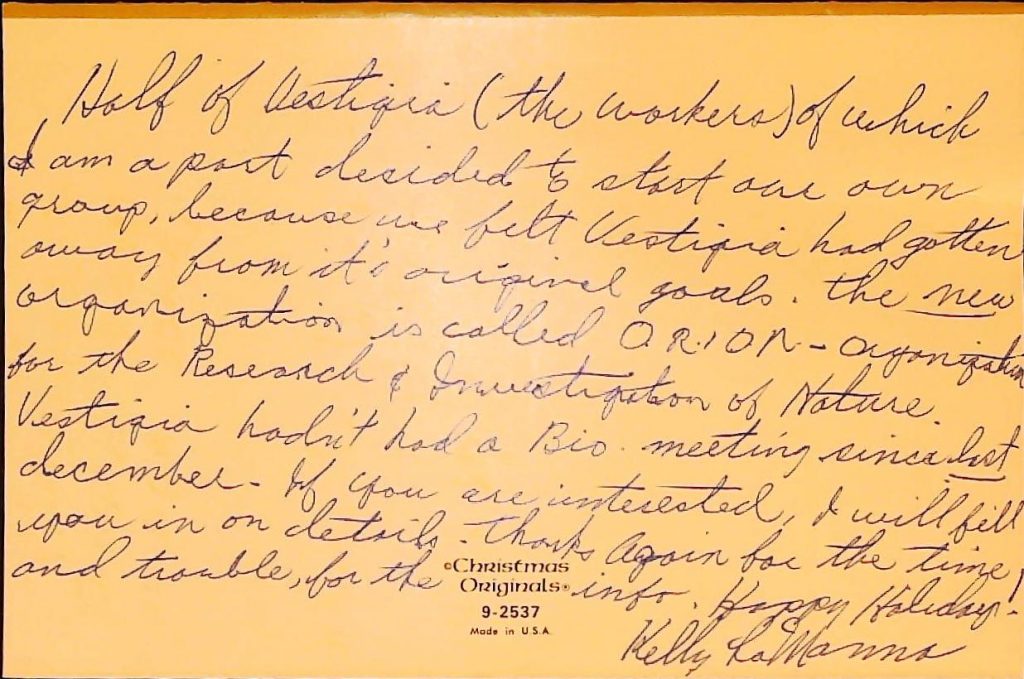 Half of Vestigia (the workers) of which
I am a part decided to start our own
group, because we felt Vestigia had gotten
away from it's original goals. the new
organization is called O.R.I O.N - Organization
for the Research & Investigation of Nature.
Vestigia hadn't had a Bio. meeting since last
december - If you are interested, I will fill
you in on details. Thanks Again for the time
and trouble, for the info. Happy Holidays -
©Christmas
Originals®
9-2537
Made in U.S.A.
Kelly LaManna